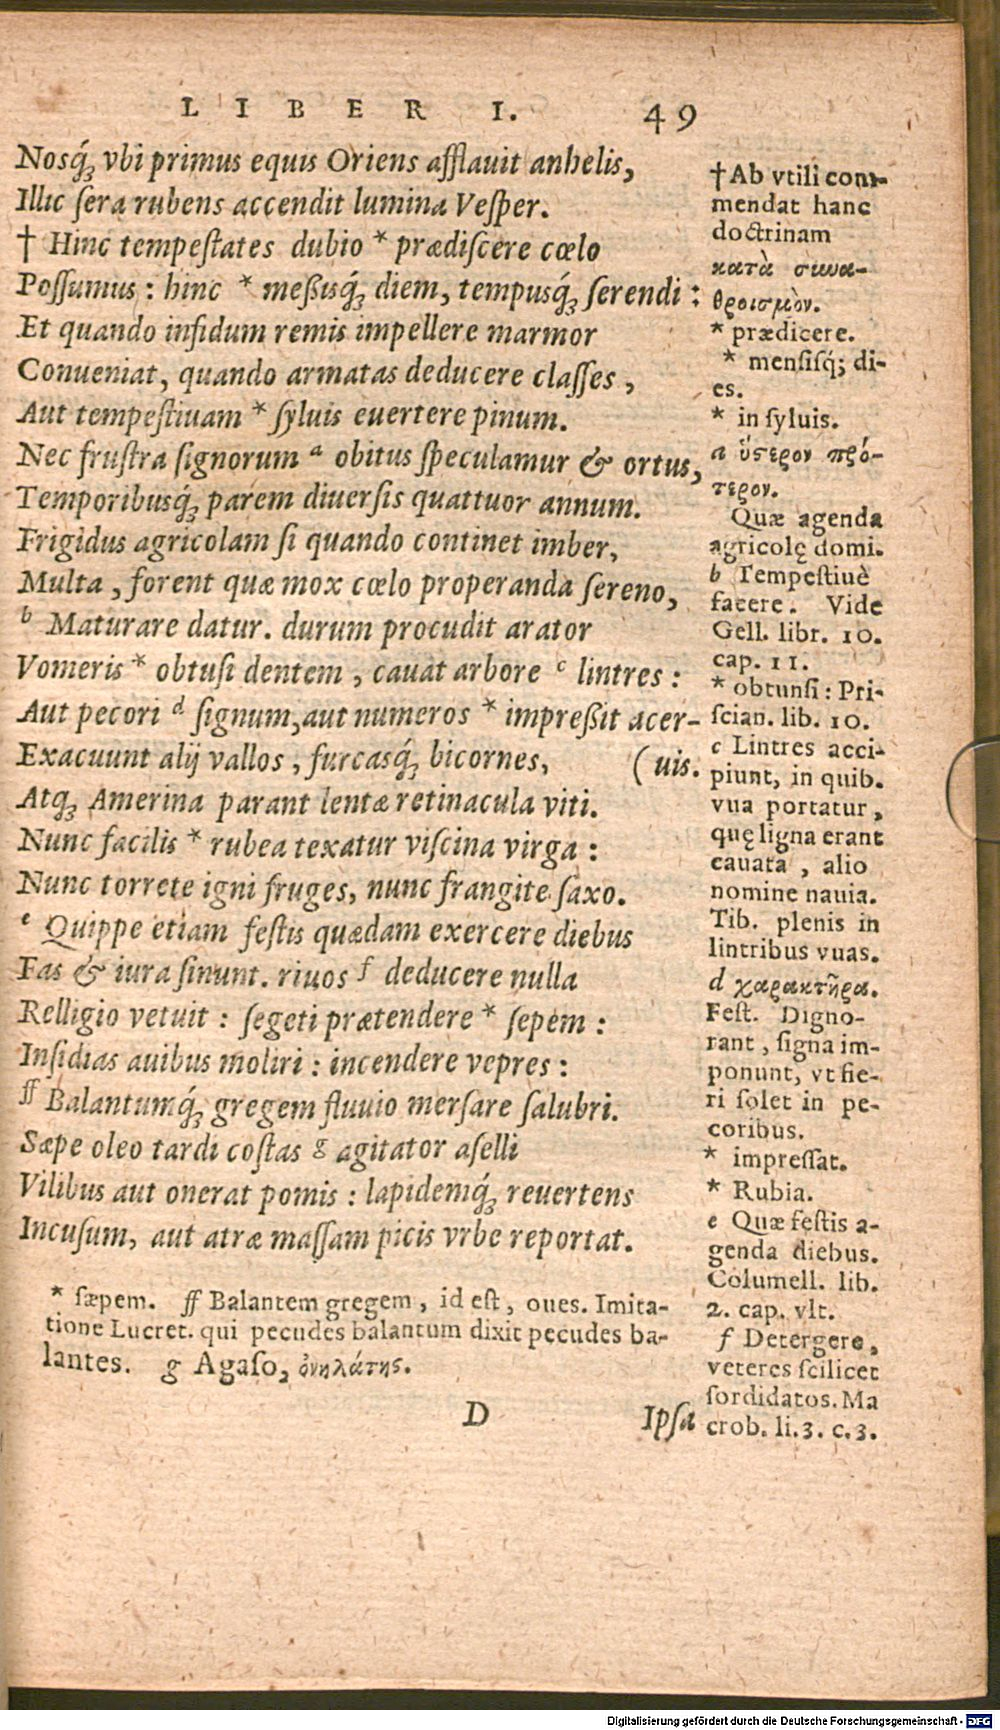 LIBER I. 49
Nosq́ʒ vbi primus equis Oriens afflauit anhelis,
Illic ſera rubens accendit lumina Veſper.
† Hinc tempeſtates dubio * prædiſcere cœlo
Poſſumus : hinc * meßisq́ʒ diem, tempusq́ʒ ſerendi :
Et quando infidum remis impellere marmor
Conueniat, quando armatas deducere claſſes,
Aut tempeſtiuam * ſyluis euertere pinum.
Nec fruſtra ſignorum a obitus ſpeculamur & ortus,
Temporibusq́ʒ parem diuerſis quattuor annum.
Frigidus agricolam ſi quando continet imber,
Multa, forent quæ mox cœlo properanda ſereno,
b Maturare datur. durum procudit arator
Vomeris * obtuſi dentem, cauat arbore c lintres :
Aut pecori d ſignum, aut numeros * impreßit acer-
Exacuunt alij vallos, furcasq́ʒ bicornes, (uis.
Atqʒ Amerina parant lentæ retinacula viti.
Nunc facilis * rubea texatur viſcina virga :
Nunc torrete igni fruges, nunc frangite ſaxo.
e Quippe etiam feſtis quædam exercere diebus
Fas & iura ſinunt. riuos f deducere nulla
Relligio vetuit : ſegeti prætendere * ſepem :
Inſidias auibus moliri : incendere vepres :
ff Balantumq́ʒ gregem fluuio merſare ſalubri.
Sæpe oleo tardi coſtas g agitator aſelli
Vilibus aut onerat pomis : lapidemq́ʒ reuertens
Incuſum, aut atræ maſſam picis vrbe reportat.
* ſæpem. ff Balantem gregem, id eſt, oues. Imita-
tione Lucret. qui pecudes balantum dixit pecudes ba-
lantes. g Agaſo, ὀνηλάτης.
D Ipſa
† Ab vtili com-
mendat hanc
doctrinam
κατὰ συνα-
θροισμὸν.
* prædicere.
* menſiſq́; di-
es.
* in ſyluis.
a ὕστερον πρό-
τερον.
Quæ agenda
agricolę domi.
b Tempeſtiuè
facere. Vide
Gell. libr. 10.
cap. 11.
* obtunſi : Pri-
ſcian. lib. 10.
c Lintres acci-
piunt, in quib.
vua portatur,
quę ligna erant
cauata, alio
nomine nauia.
Tib. plenis in
lintribus vuas.
d χαρακτῆρα.
Feſt. Digno-
rant, ſigna im-
ponunt, vt fie-
ri ſolet in pe-
coribus.
* impreſſat.
* Rubia.
e Quæ feſtis a-
genda diebus.
Columell. lib.
2. cap. vlt.
f Detergere,
veteres ſcilicet
ſordidatos. Ma
crob. li. 3. c. 3.
Digitalisierung gefördert durch die Deutsche Forschungsgemeinschaft - DFG